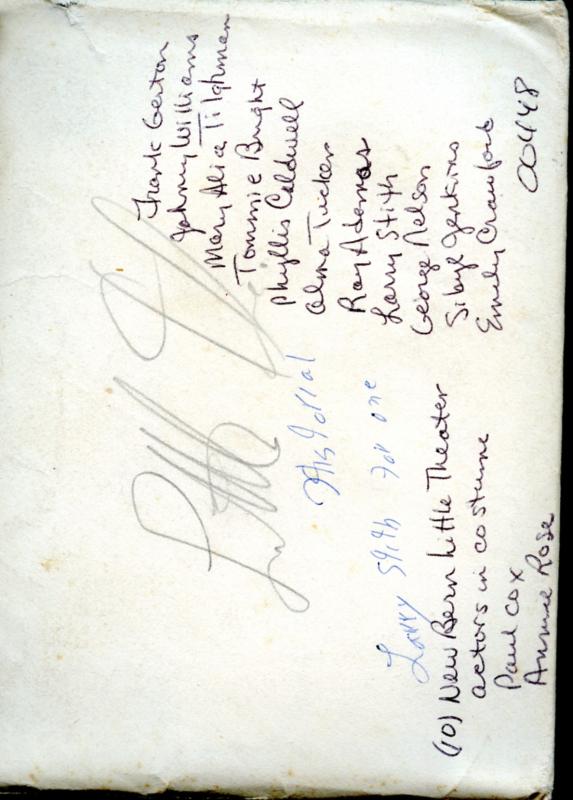 Little
Historial
Larry Stith for one
(10) New Bern Little Theater
actors in costume
Paul Cox
Annie Rose
Frank Gerton
Johnny Williams
Mary Alice Tilghman
Tommie Bright
Phyllis Caldwell
Alma Tucker
Ray Adams
Larry Stith
George Nelson
Sibyl Jenkins
Emily Crawford
00448